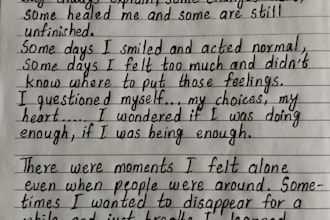 some healed me and some are still
unfinished.
Some days I smiled and acted normal,
some days I felt too much and didn't
know where to put those feelings.
I questioned myself... my choices, my
heart..... I wondered if I was doing
enough, if I was being enough.
There were moments I felt alone
even when people were around. Some-
times I wanted to disappear for a
while and just breathe I learned